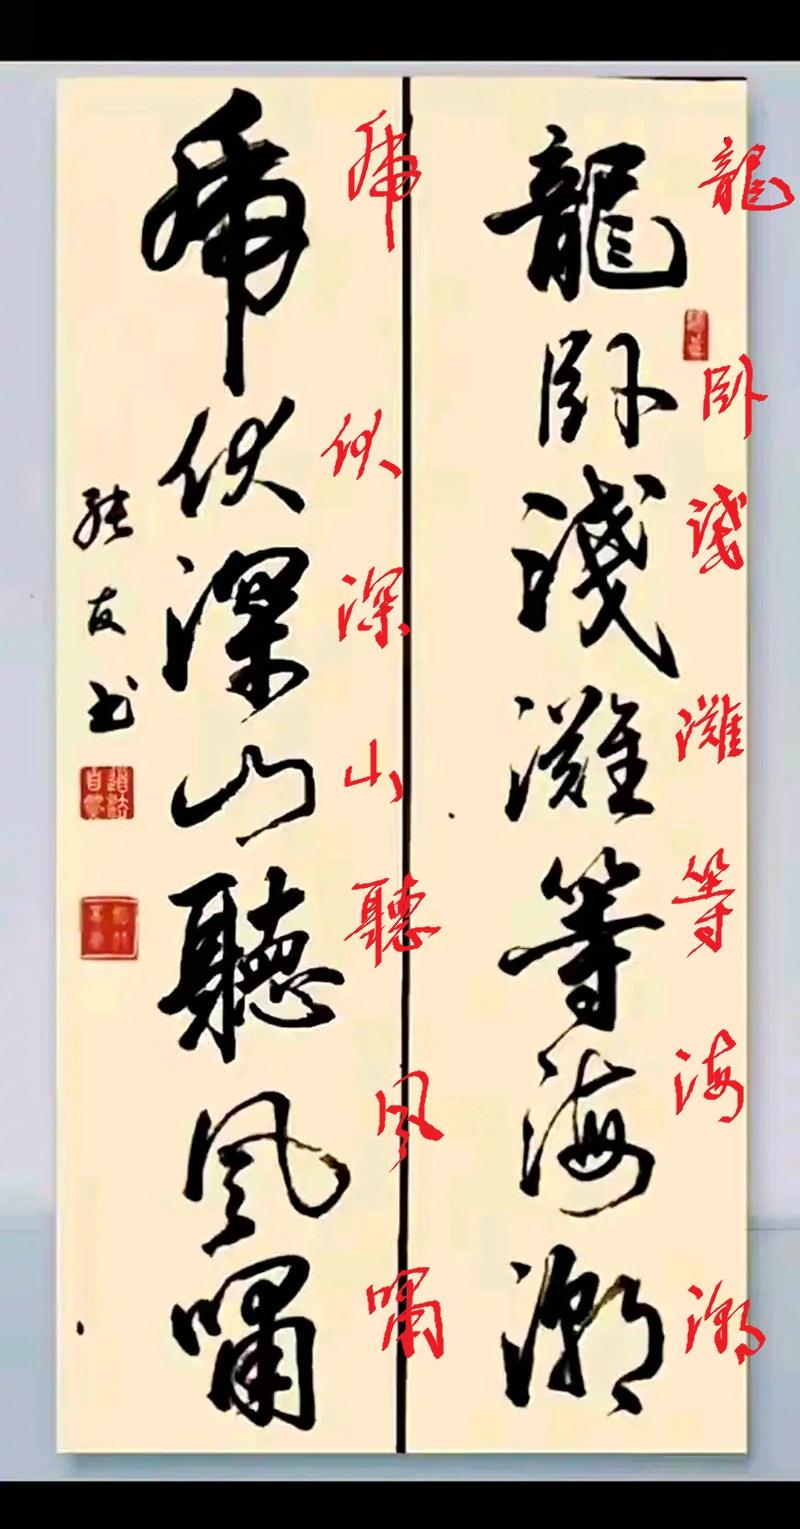 龍臥淺灘等海潮
龍臥淺灘等海潮
虎伏深山聽風嘯
虎伏深山聽風嘯
友书